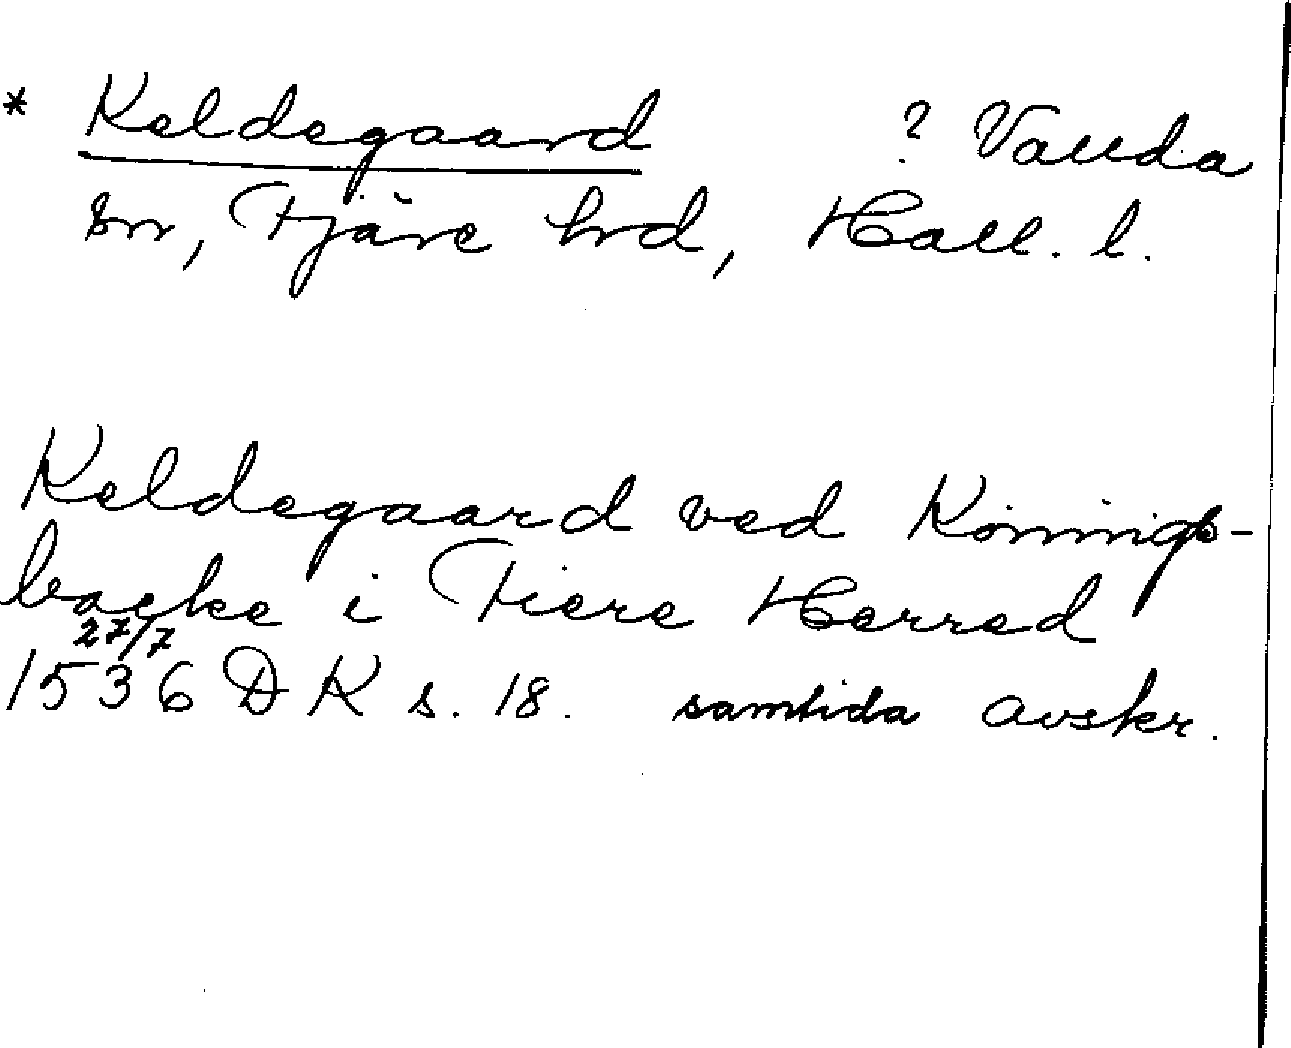 * Keldegaard ? Vallda
sn, Fjäre hrd, Hall. l.
Keldegaard ved Konnings-
backe i Fiere Herred
27/7
1536 DK s. 18. samtida avskr.